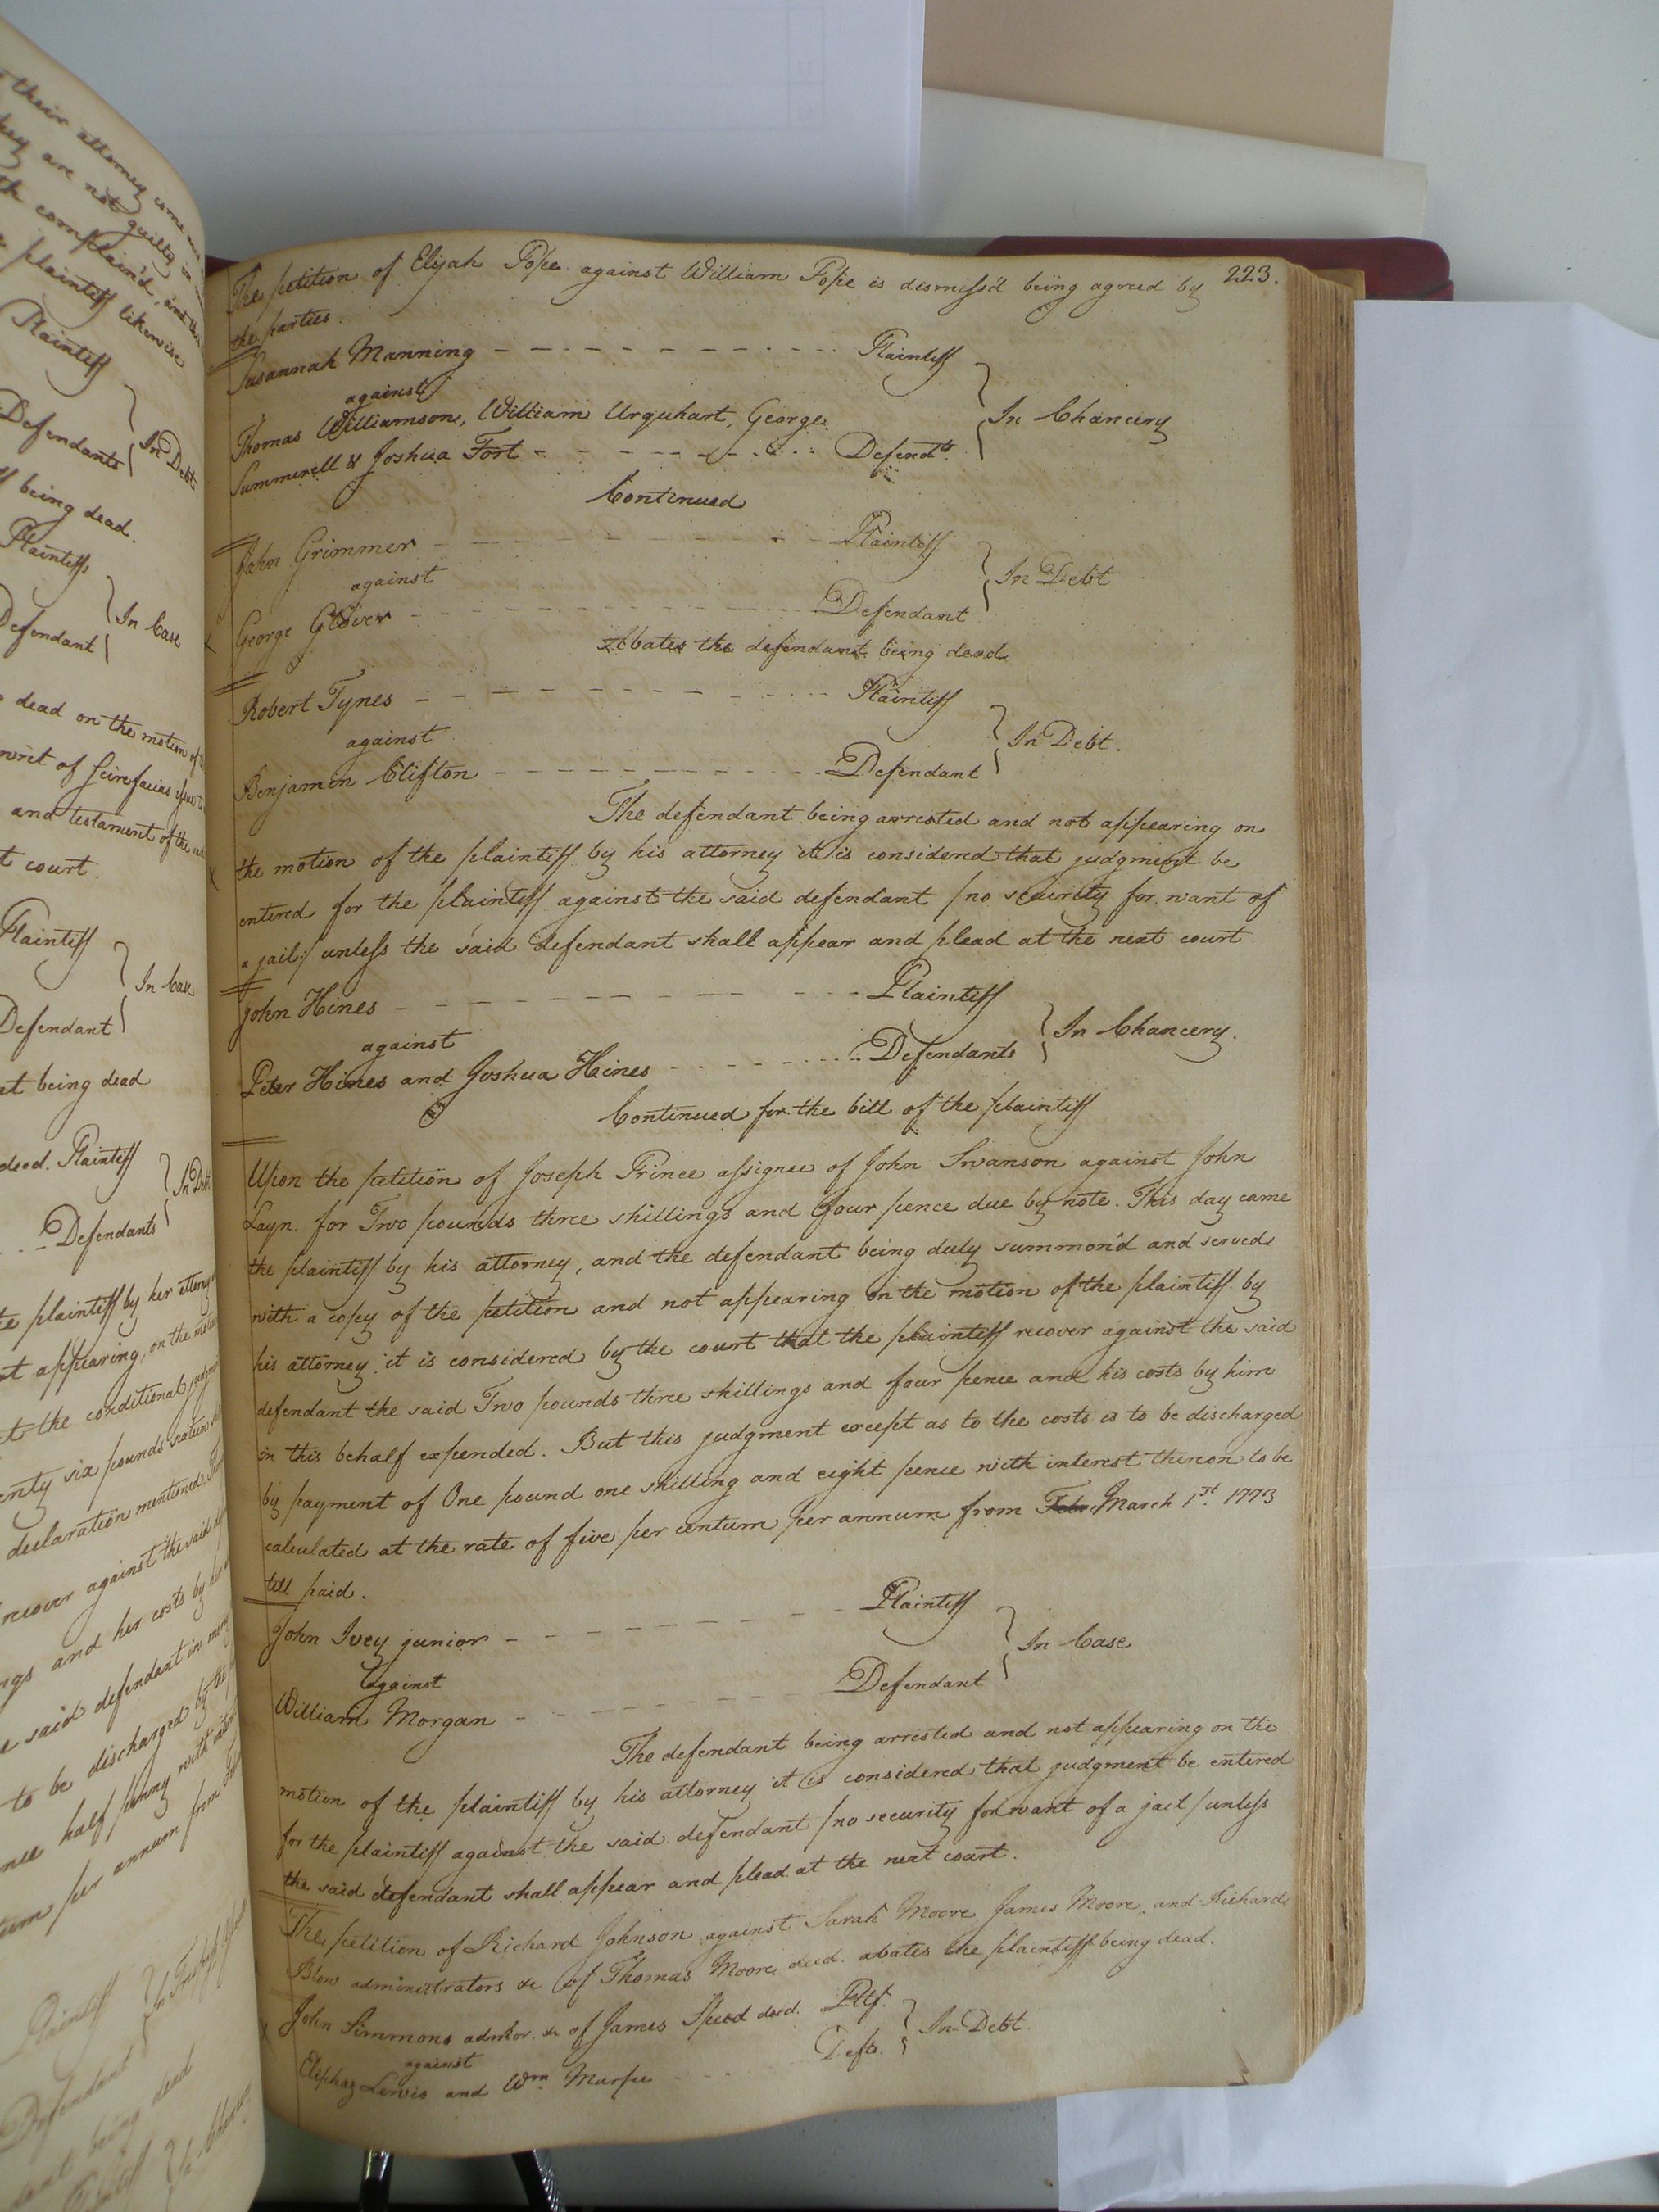 their attorney come
they are not guilty in
complain'd, and
plaintiff likewise
Plaintiff
Defendants
In Debt
being dead.
Plaintiffs
Defendant
In Case
dead on the motion of
writ of scirefacias issue
and testament of the
court.
Plaintiff
Defendant
In Case
being dead
deced. Plaintiff
Defendants
In Debt
plaintiff by her attorney
appearing, on the motion
the conditional
six pounds
declaration mentioned.
recover against the said
and her costs by
said defendant in mercy
to be discharged by the
half penny with
per annum from
Plaintiff
Defendant
being dead
In Chancery
223.
The petition of Elijah Pope against William Pope is dismiss'd being agreed by
the parties.
Susannah Manning - - - Plaintiff
against
Thomas Williamson, William Urquhart, George
Summerell & Joshua Fort - - - Defendts.
In Chancery
Continued
John Grimmer - - - Plaintiff
against
George Glover - - - Defendant
In Debt
Abates the defendant being dead
Robert Tynes - - - Plaintiff
against
Benjamin Clifton - - - Defendant
In Debt.
The defendant being arrested and not appearing on
the motion of the plaintiff by his attorney it is considered that judgment be
entered for the plaintiff against the said defendant /no security for want of
a jail;/ unless the said defendant shall appear and plead at the next court
John Hines - - - Plaintiff
against
Peter Hines and Joshua Hines - - - Defendants
In Chancery.
Continued for the bill of the plaintiff
Upon the petition of Joseph Prince assignee of John Swanson against John
Layn. for Two pounds three shillings and four pence due by note. This day came
the plaintiff by his attorney, and the defendant being duly summon'd and served
with a copy of the petition and not appearing on the motion of the plaintiff by
his attorney it is considered by the court that the plaintiff recover against the said
defendant the said Two pounds three shillings and four pence and his costs by him
in this behalf expended. But this judgment except as to the costs is to be discharged
by payment of One pound one shilling and eight pence with interest thereon to be
calculated at the rate of five per centum per annum from Feb. March 1st. 1773
till paid.
John Ivey junior - - - Plaintiff
Against
William Morgan - - - Defendant
In Case
The defendant being arrested and not appearing on the
motion of the plaintiff by his attorney it is considered that judgment be entered
for the plaintiff against the said defendant /no security for want of a jail/ unless
the said defendant shall appear and plead at the next court.
The petition of Richard Johnson against Sarah Moore James Moore and Richard
Blow administrators &c of Thomas Moore deced. abates the plaintiff being dead.
John Simmons admor. &c of James Speed deced. Pltf.
against
Eliphaz Lewis and Wm. Murfee - - - Defts.
In Debt